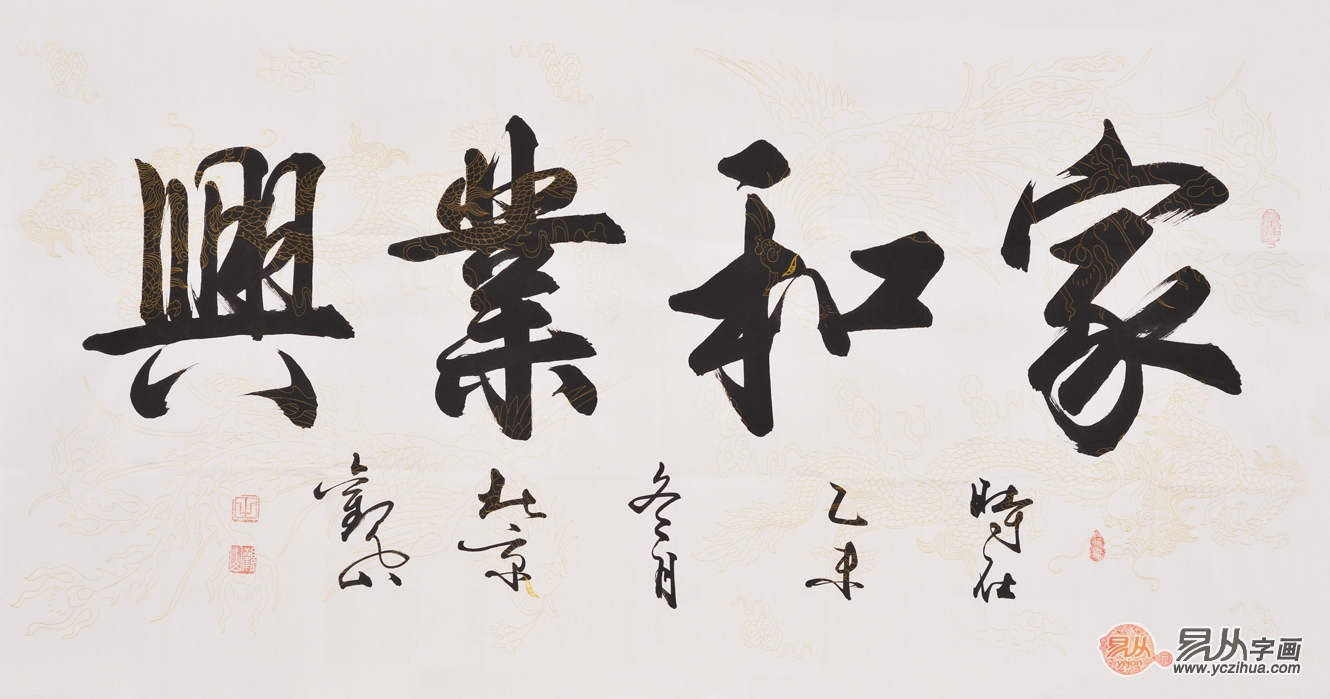 家和業興
時在
乙未
冬月
北京
觀山
易从
yigon
易从字画
www.yczihua.com